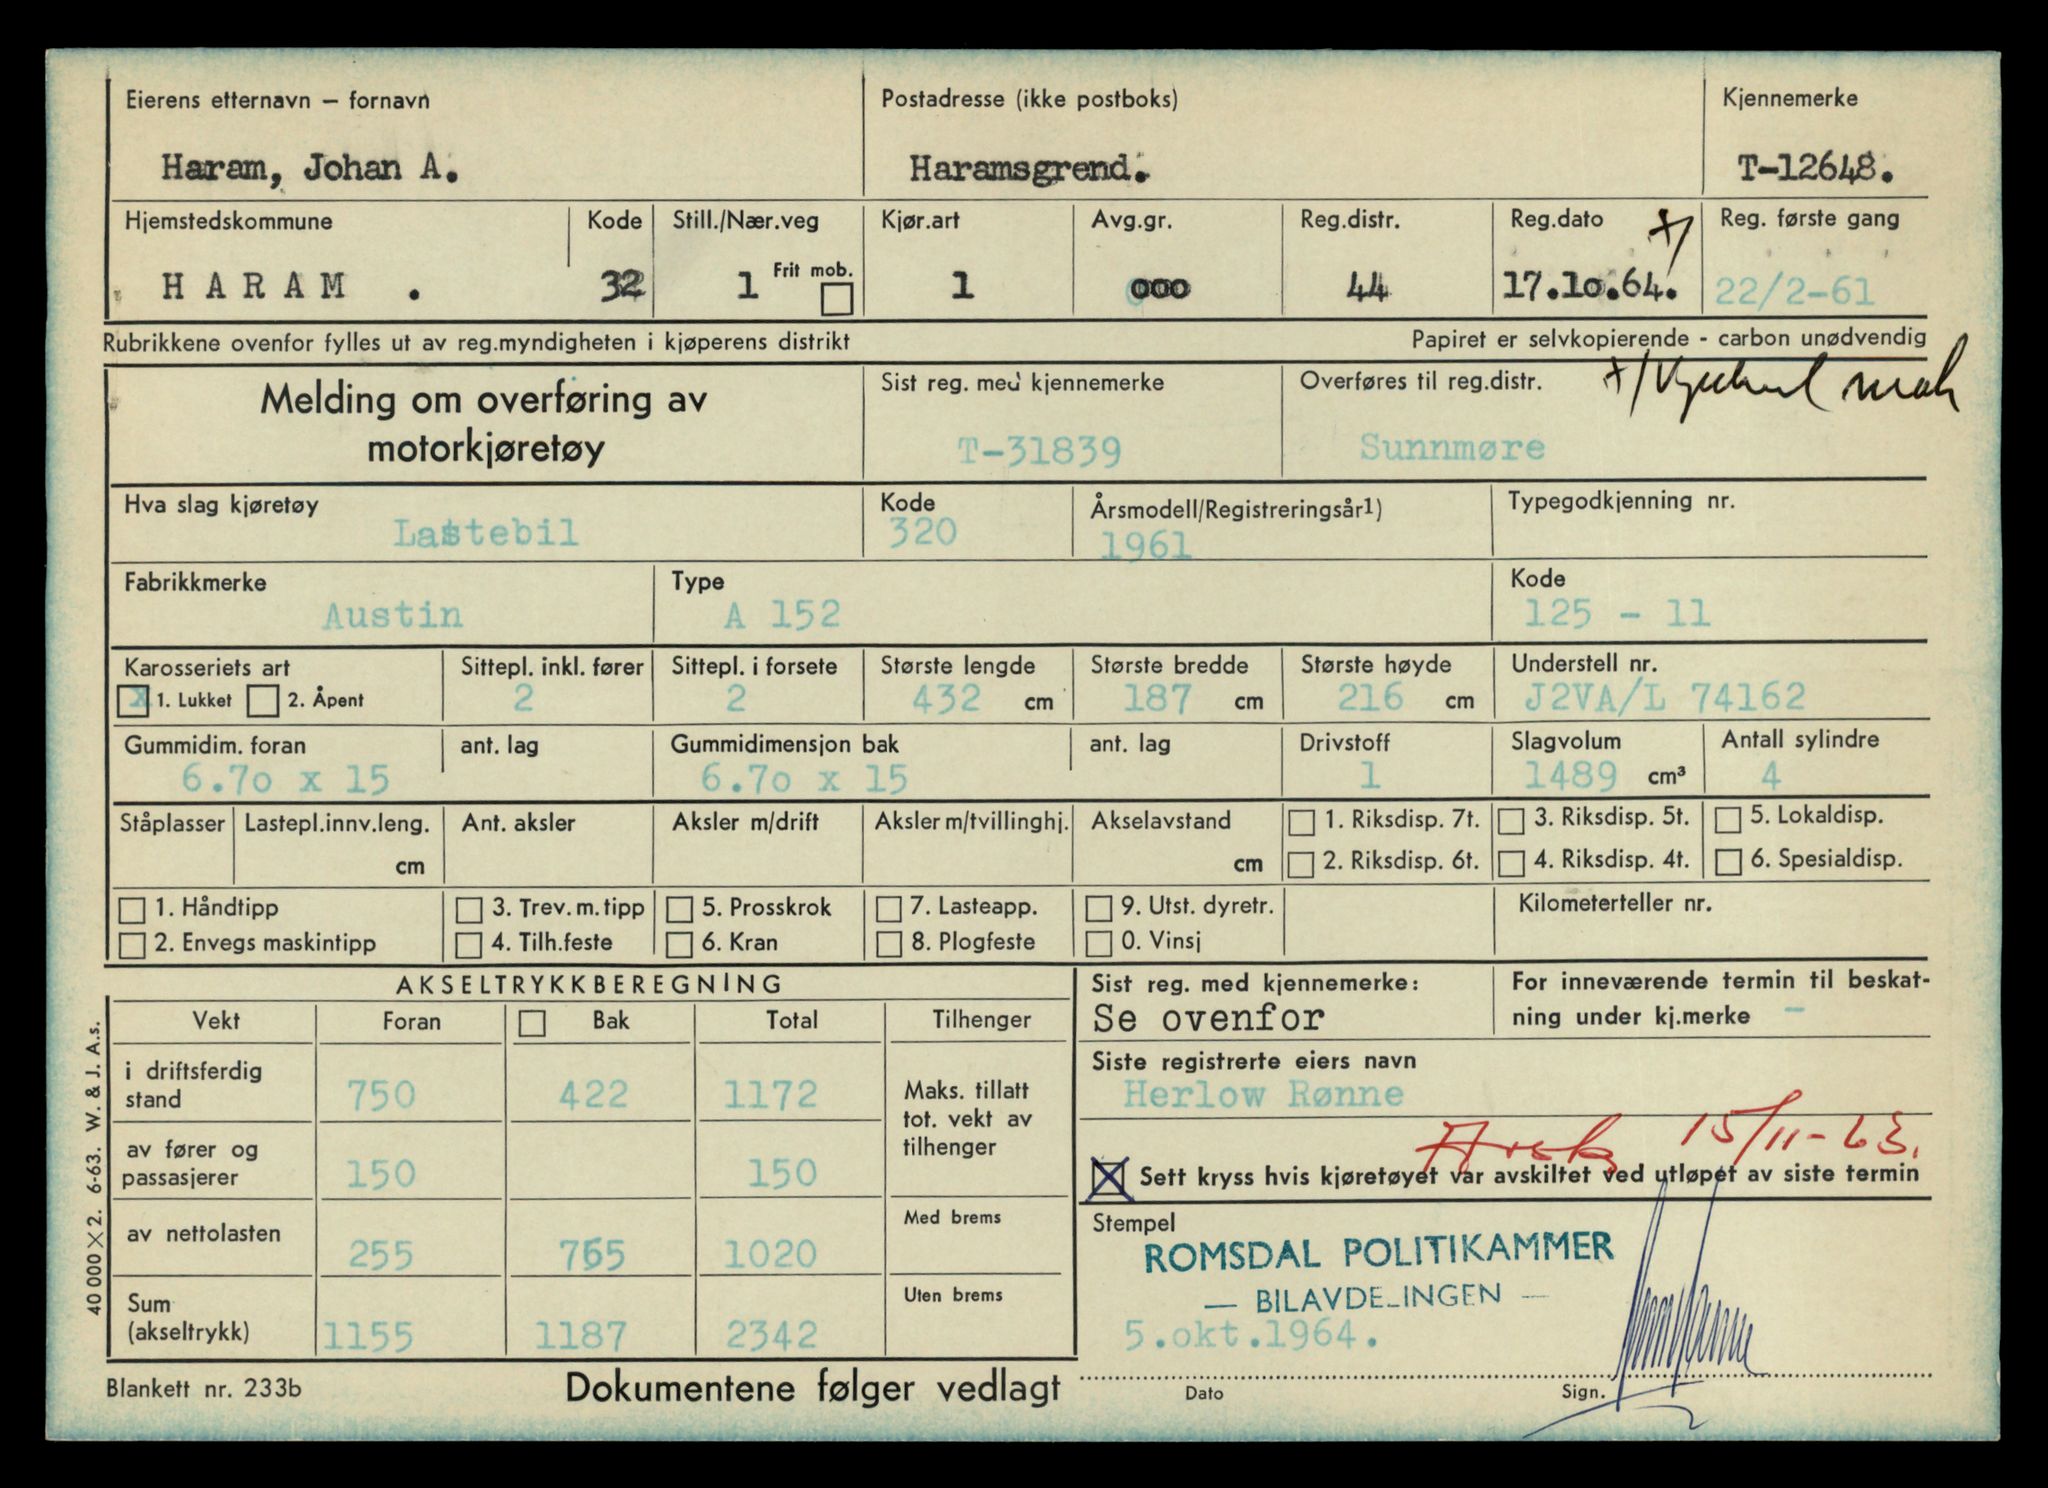 Eierens etternavn – fornavn
Haram, Johan A.
Postadresse (ikke postboks)
Haramsgrend.
Kjennemerke
T-12648.
Hjemstedskommune
HARAM .
Kode
32
Still./Nær.veg
1
Frit mob.
Kjør.art
1
Avg.gr.
000
Reg.distr.
44
Reg.dato
17.10.64.
Reg. første gang
22/2-61
Rubrikkene ovenfor fylles ut av reg.myndigheten i kjøperens distrikt
Papiret er selvkopierende - carbon unødvendig
Melding om overføring av
motorkjøretøy
Sist reg. med kjennemerke
T-31839
Overføres til reg.distr.
Sunnmøre
Hva slag kjøretøy
Lastebil
Kode
320
Årsmodell/Registreringsår1)
1961
Typegodkjenning nr.
Fabrikkmerke
Austin
Type
A 152
Kode
125 - 11
Karosseriets art
x 1. Lukket 2. Åpent
Sittepl. inkl. fører
2
Sittepl. i forsete
2
Største lengde
432 cm
Største bredde
187 cm
Største høyde
216 cm
Understell nr.
J2VA/L 74162
Gummidim. foran
6.70 x 15
ant. lag
Gummidimensjon bak
6.70 x 15
ant. lag
Drivstoff
1
Slagvolum
1489 cm³
Antall sylindre
4
Ståplasser
Lastepl.innv.leng.
cm
Ant. aksler
Aksler m/drift
Aksler m/tvillinghj.
Akselavstand
cm
1. Riksdisp. 7t. 3. Riksdisp. 5t. 5. Lokaldisp.
2. Riksdisp. 6t. 4. Riksdisp. 4t. 6. Spesialdisp.
1. Håndtipp 3. Trev. m. tipp 5. Prosskrok 7. Lasteapp. 9. Utst. dyretr.
2. Envegs maskintipp 4. Tilh.feste 6. Kran 8. Plogfeste 0. Vinsj
Kilometerteller nr.
AKSELTRYKKBEREGNING
Vekt Foran Bak Total Tilhenger
i driftsferdig
stand 750 422 1172
Maks. tillatt
tot. vekt av
tilhenger
av fører og
passasjerer 150 150
av nettolasten 255 765 1020
Med brems
Sum
(akseltrykk) 1155 1187 2342
Uten brems
Sist reg. med kjennemerke:
Se ovenfor
For inneværende termin til beskat-
ning under kj.merke -
Siste registrerte eiers navn
Herlow Rønne
15/11-63.
Sett kryss hvis kjøretøyet var avskiltet ved utløpet av siste termin
Stempel
ROMSDAL POLITIKAMMER
— BILAVDELINGEN —
5.okt.1964.
Dato
Sign.
40 000 X 2. 6-63. W. & J. A.s.
Blankett nr. 233b
Dokumentene følger vedlagt